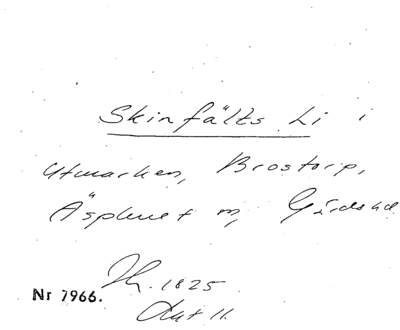 Skinfälts Li i
Utmarken, Brostorp,
Äsplunet m, Gårdshd
Th. 1825
Nr 7966.
Akt 11.